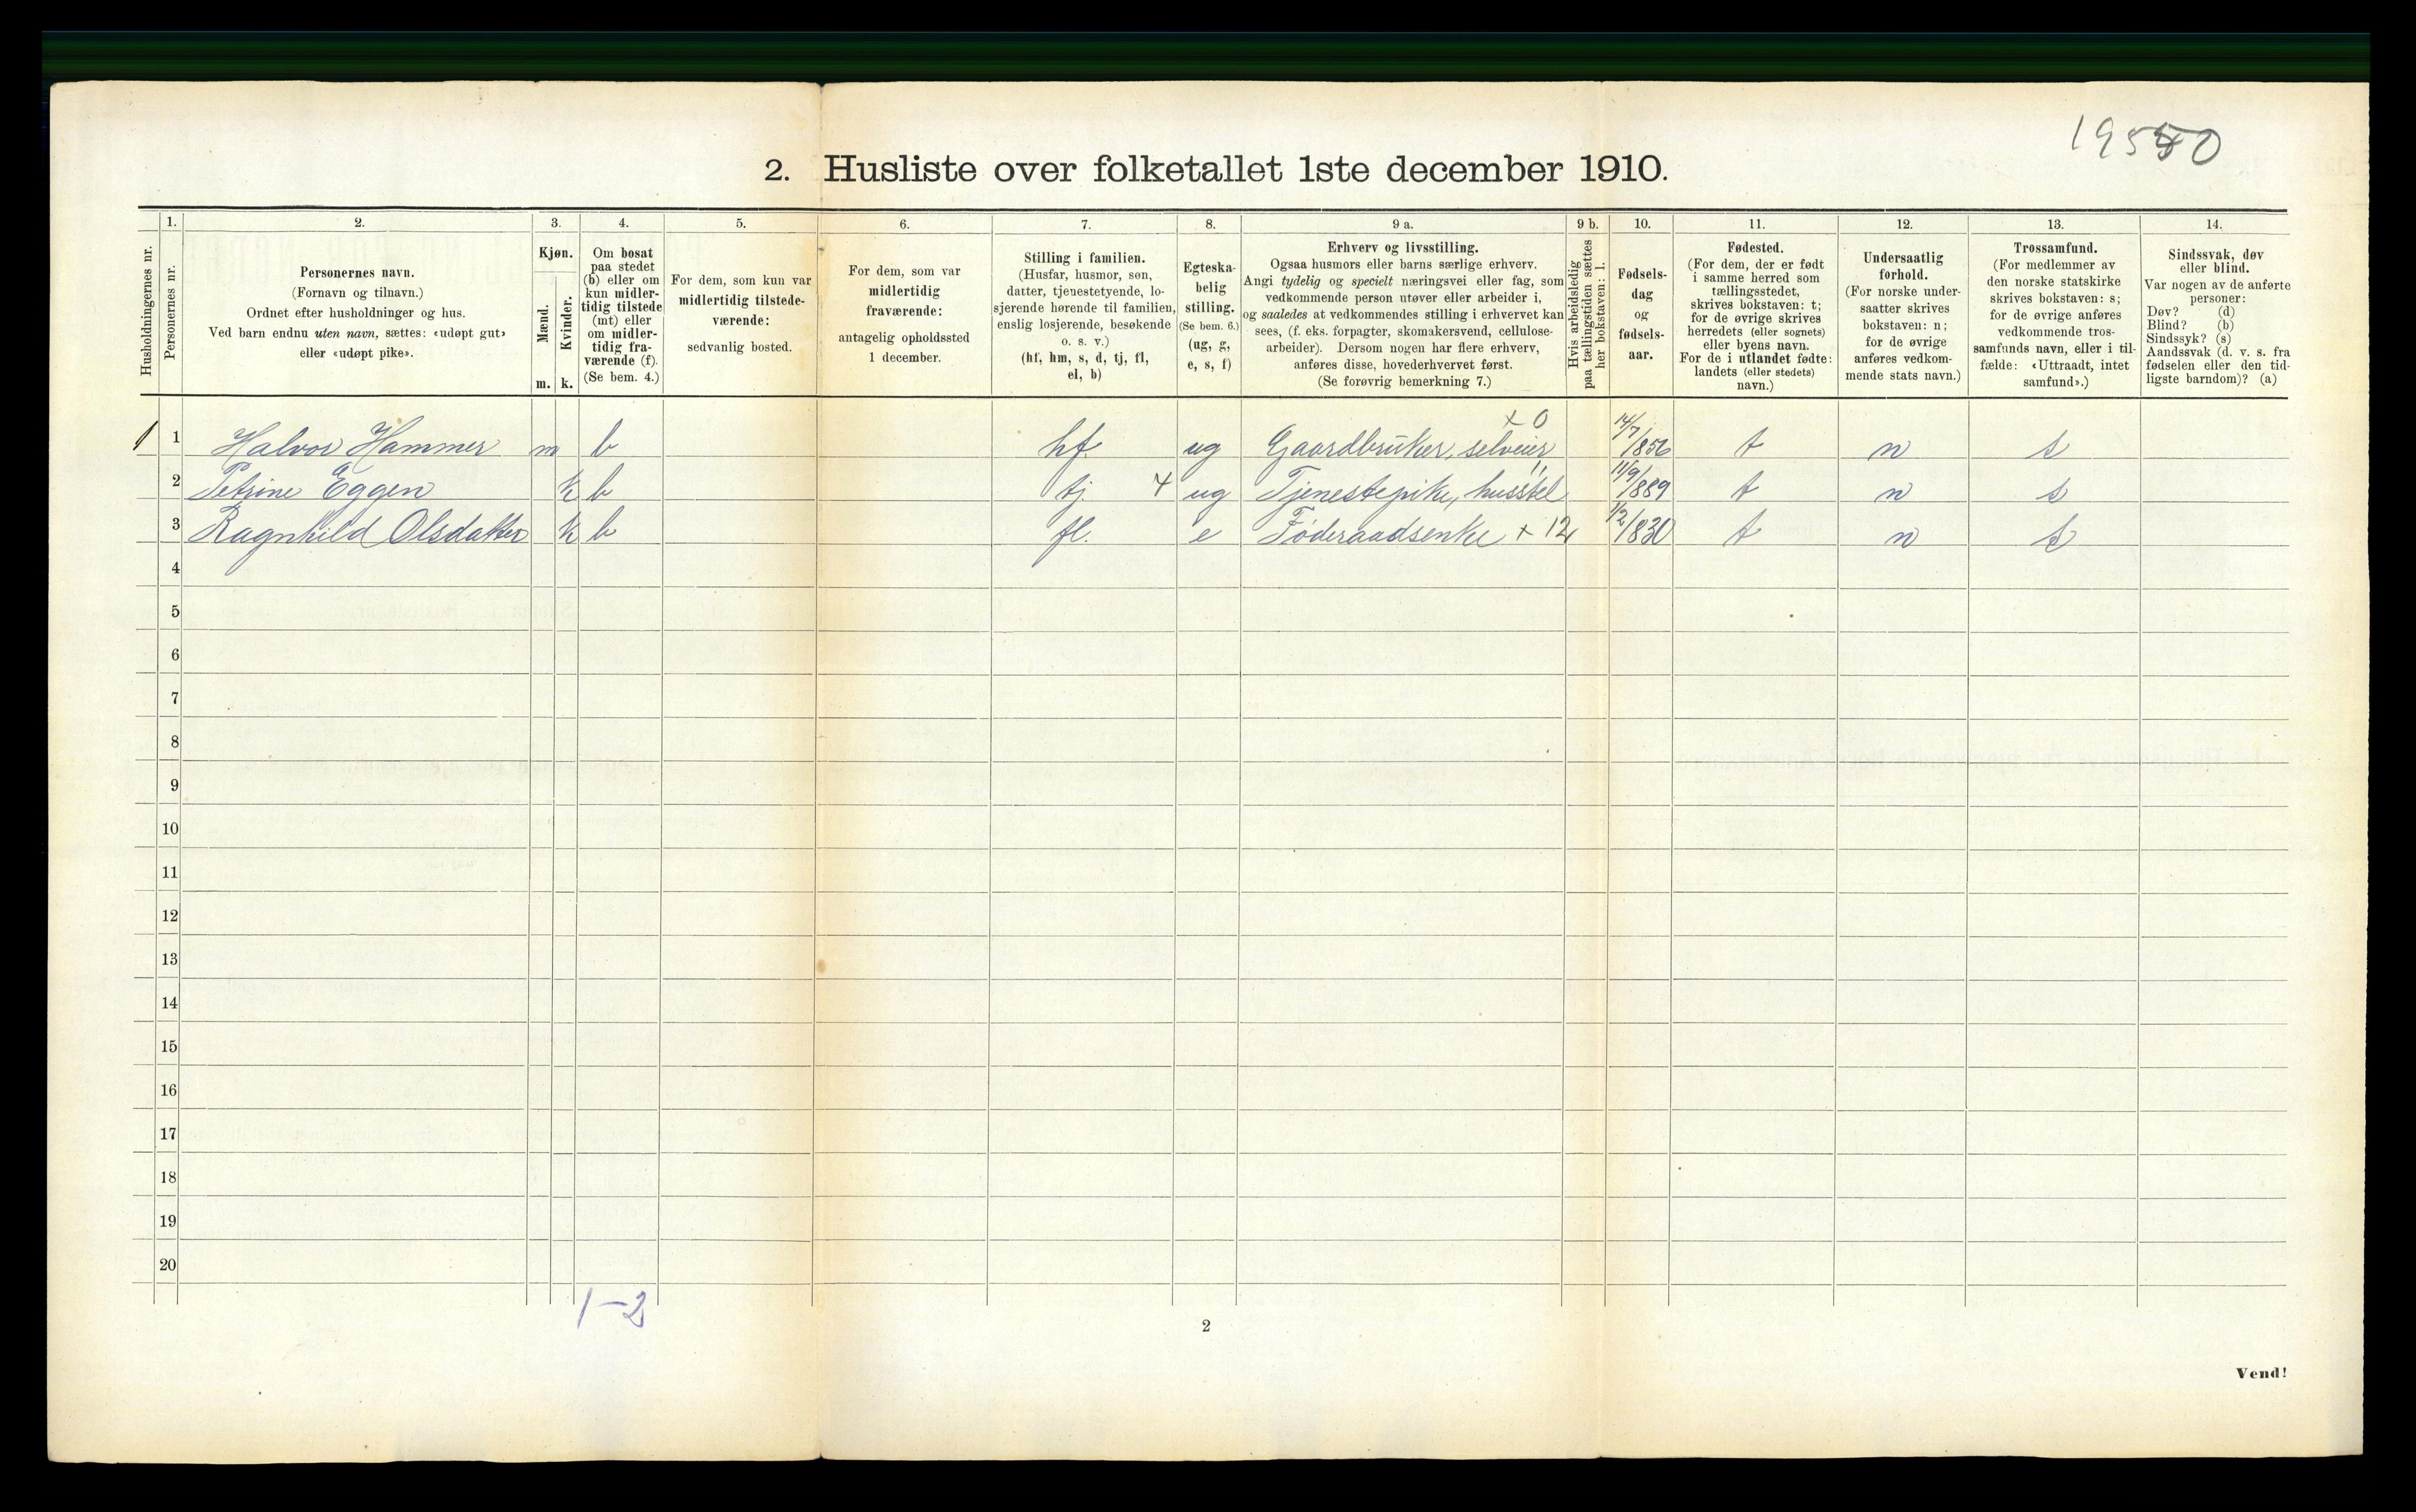 19550
2. Husliste over folketallet 1ste december 1910.
Husholdningernes nr.
1.
Personernes nr.
2.
Personernes navn.
(Fornavn og tilnavn.)
Ordnet efter husholdninger og hus.
Ved barn endnu uten navn, sættes: «udøpt gut»
eller «udøpt pike».
3.
Kjøn.
Mænd.
m.
Kvinder.
k.
4.
Om bosat
paa stedet
(b) eller om
kun midler-
tidig tilstede
(mt) eller
om midler-
tidig fra-
værende (f).
(Se bem. 4.)
5.
For dem, som kun var
midlertidig tilstede-
værende:
sedvanlig bosted.
6.
For dem, som var
midlertidig
fraværende:
antagelig opholdssted
1 december.
7.
Stilling i familien.
(Husfar, husmor, søn,
datter, tjenestetyende, lo-
sjerende hørende til familien,
enslig losjerende, besøkende
o. s. v.)
(hf, hm, s, d, tj, fl,
el, b)
8.
Egteska-
belig
stilling.
(Se bem. 6.)
(ug, g,
e, s, f)
9 a.
Erhverv og livsstilling.
Ogsaa husmors eller barns særlige erhverv.
Angi tydelig og specielt næringsvei eller fag, som
vedkommende person utøver eller arbeider i,
og saaledes at vedkommendes stilling i erhvervet kan
sees, (f. eks. forpagter, skomakersvend, cellulose-
arbeider). Dersom nogen har flere erhverv,
anføres disse, hovederhvervet først.
(Se forøvrig bemerkning 7.)
9 b.
Hvis arbeidsledig
paa tællingstiden sættes
her bokstaven: l.
10.
Fødsels-
dag
og
fødsels-
aar.
11.
Fødested.
(For dem, der er født
i samme herred som
tællingsstedet,
skrives bokstaven: t;
for de øvrige skrives
herredets (eller sognets)
eller byens navn.
For de i utlandet fødte:
landets (eller stedets)
navn.)
12.
Undersaatlig
forhold.
(For norske under-
saatter skrives
bokstaven: n;
for de øvrige
anføres vedkom-
mende stats navn.)
13.
Trossamfund.
(For medlemmer av
den norske statskirke
skrives bokstaven: s;
for de øvrige anføres
vedkommende tros-
samfunds navn, eller i til-
fælde: «Uttraadt, intet
samfund».)
14.
Sindssvak, døv
eller blind.
Var nogen av de anførte
personer:
Døv? (d)
Blind? (b)
Sindssyk? (s)
Aandssvak (d. v. s. fra
fødselen eller den tid-
ligste barndom)? (a)
x 0
1 1 Halvor Hammer m b hf. ug Gaardbruker, selveier 14/7 1856 t n s
2 Petrine Eggen k b tj. 4 ug Tjenestepike, husstel 11/9 1889 t n s
3 Ragnhild Olsdatter k b fl. e Føderaadsenke x 12 1/2 1830 t n s
4
5
6
7
8
9
10
11
12
13
14
15
16
17
18
19
20
1-2
2
Vend!